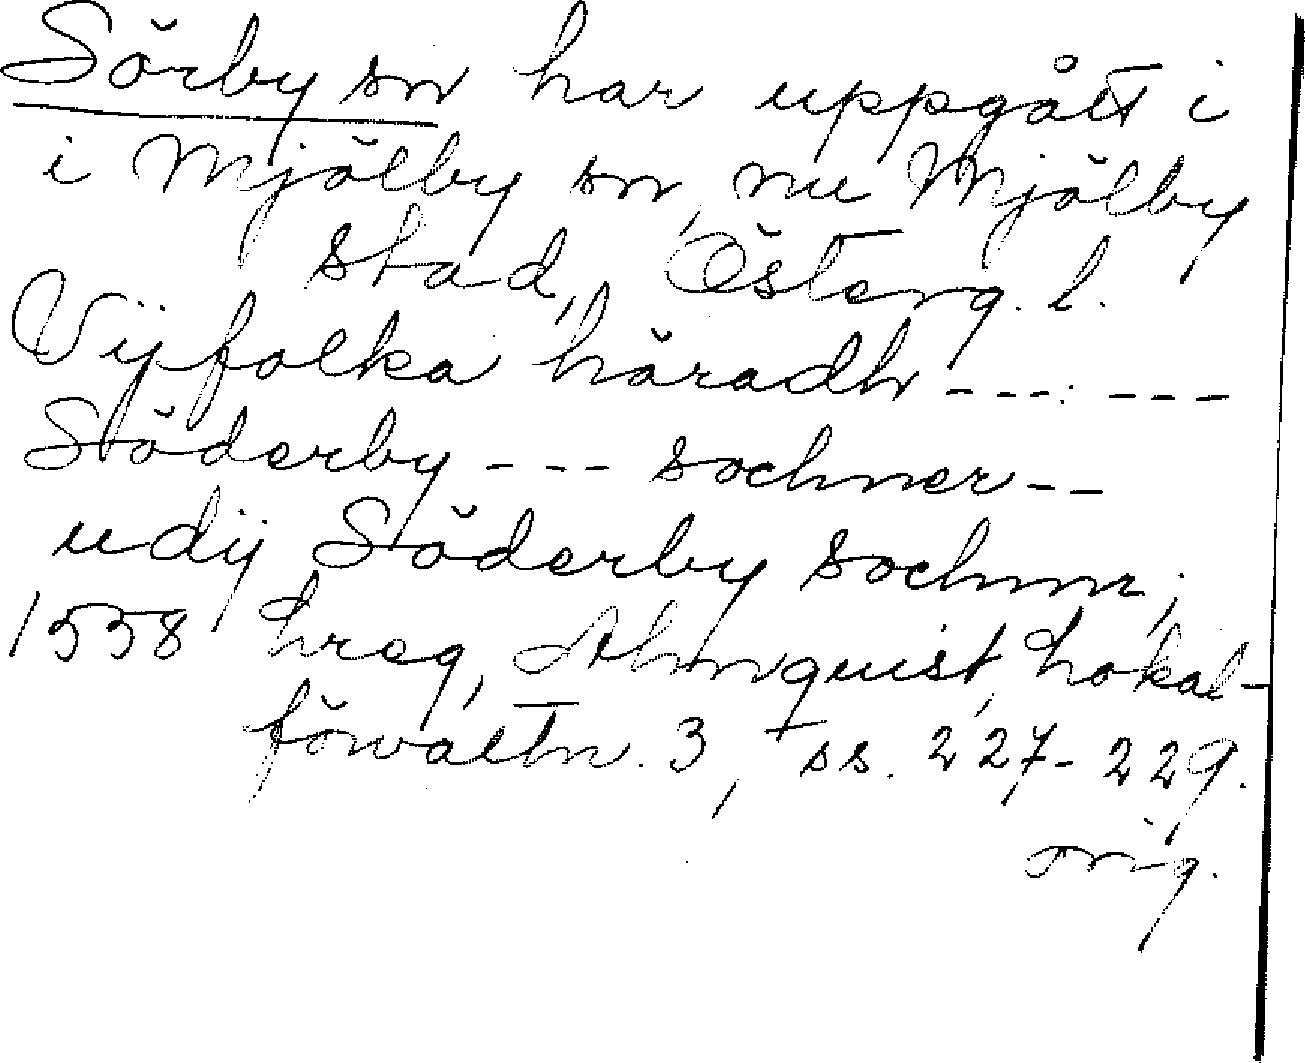 Sörby sn har uppgått i
i Mjölby sn, nu Mjölby
stad, Österg. l.
Vijfolka häradh ---. ---
Söderby --- sochner --
udij Söderby sochnn;
1558 hreg, Almquist, Lokal-
förvaltn. 3, ss. 227-229.
orig.